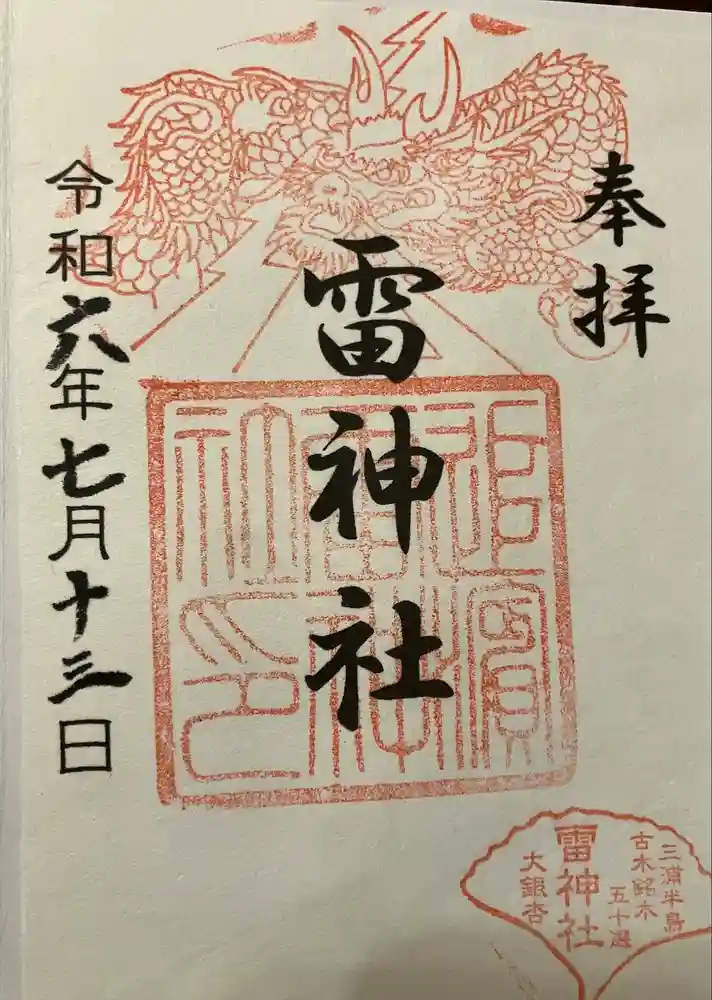 奉拝
雷神社
令和六年七月十三日
追濱
雷神
社印
三浦半島
古木銘木
五十選
雷神社
大銀杏